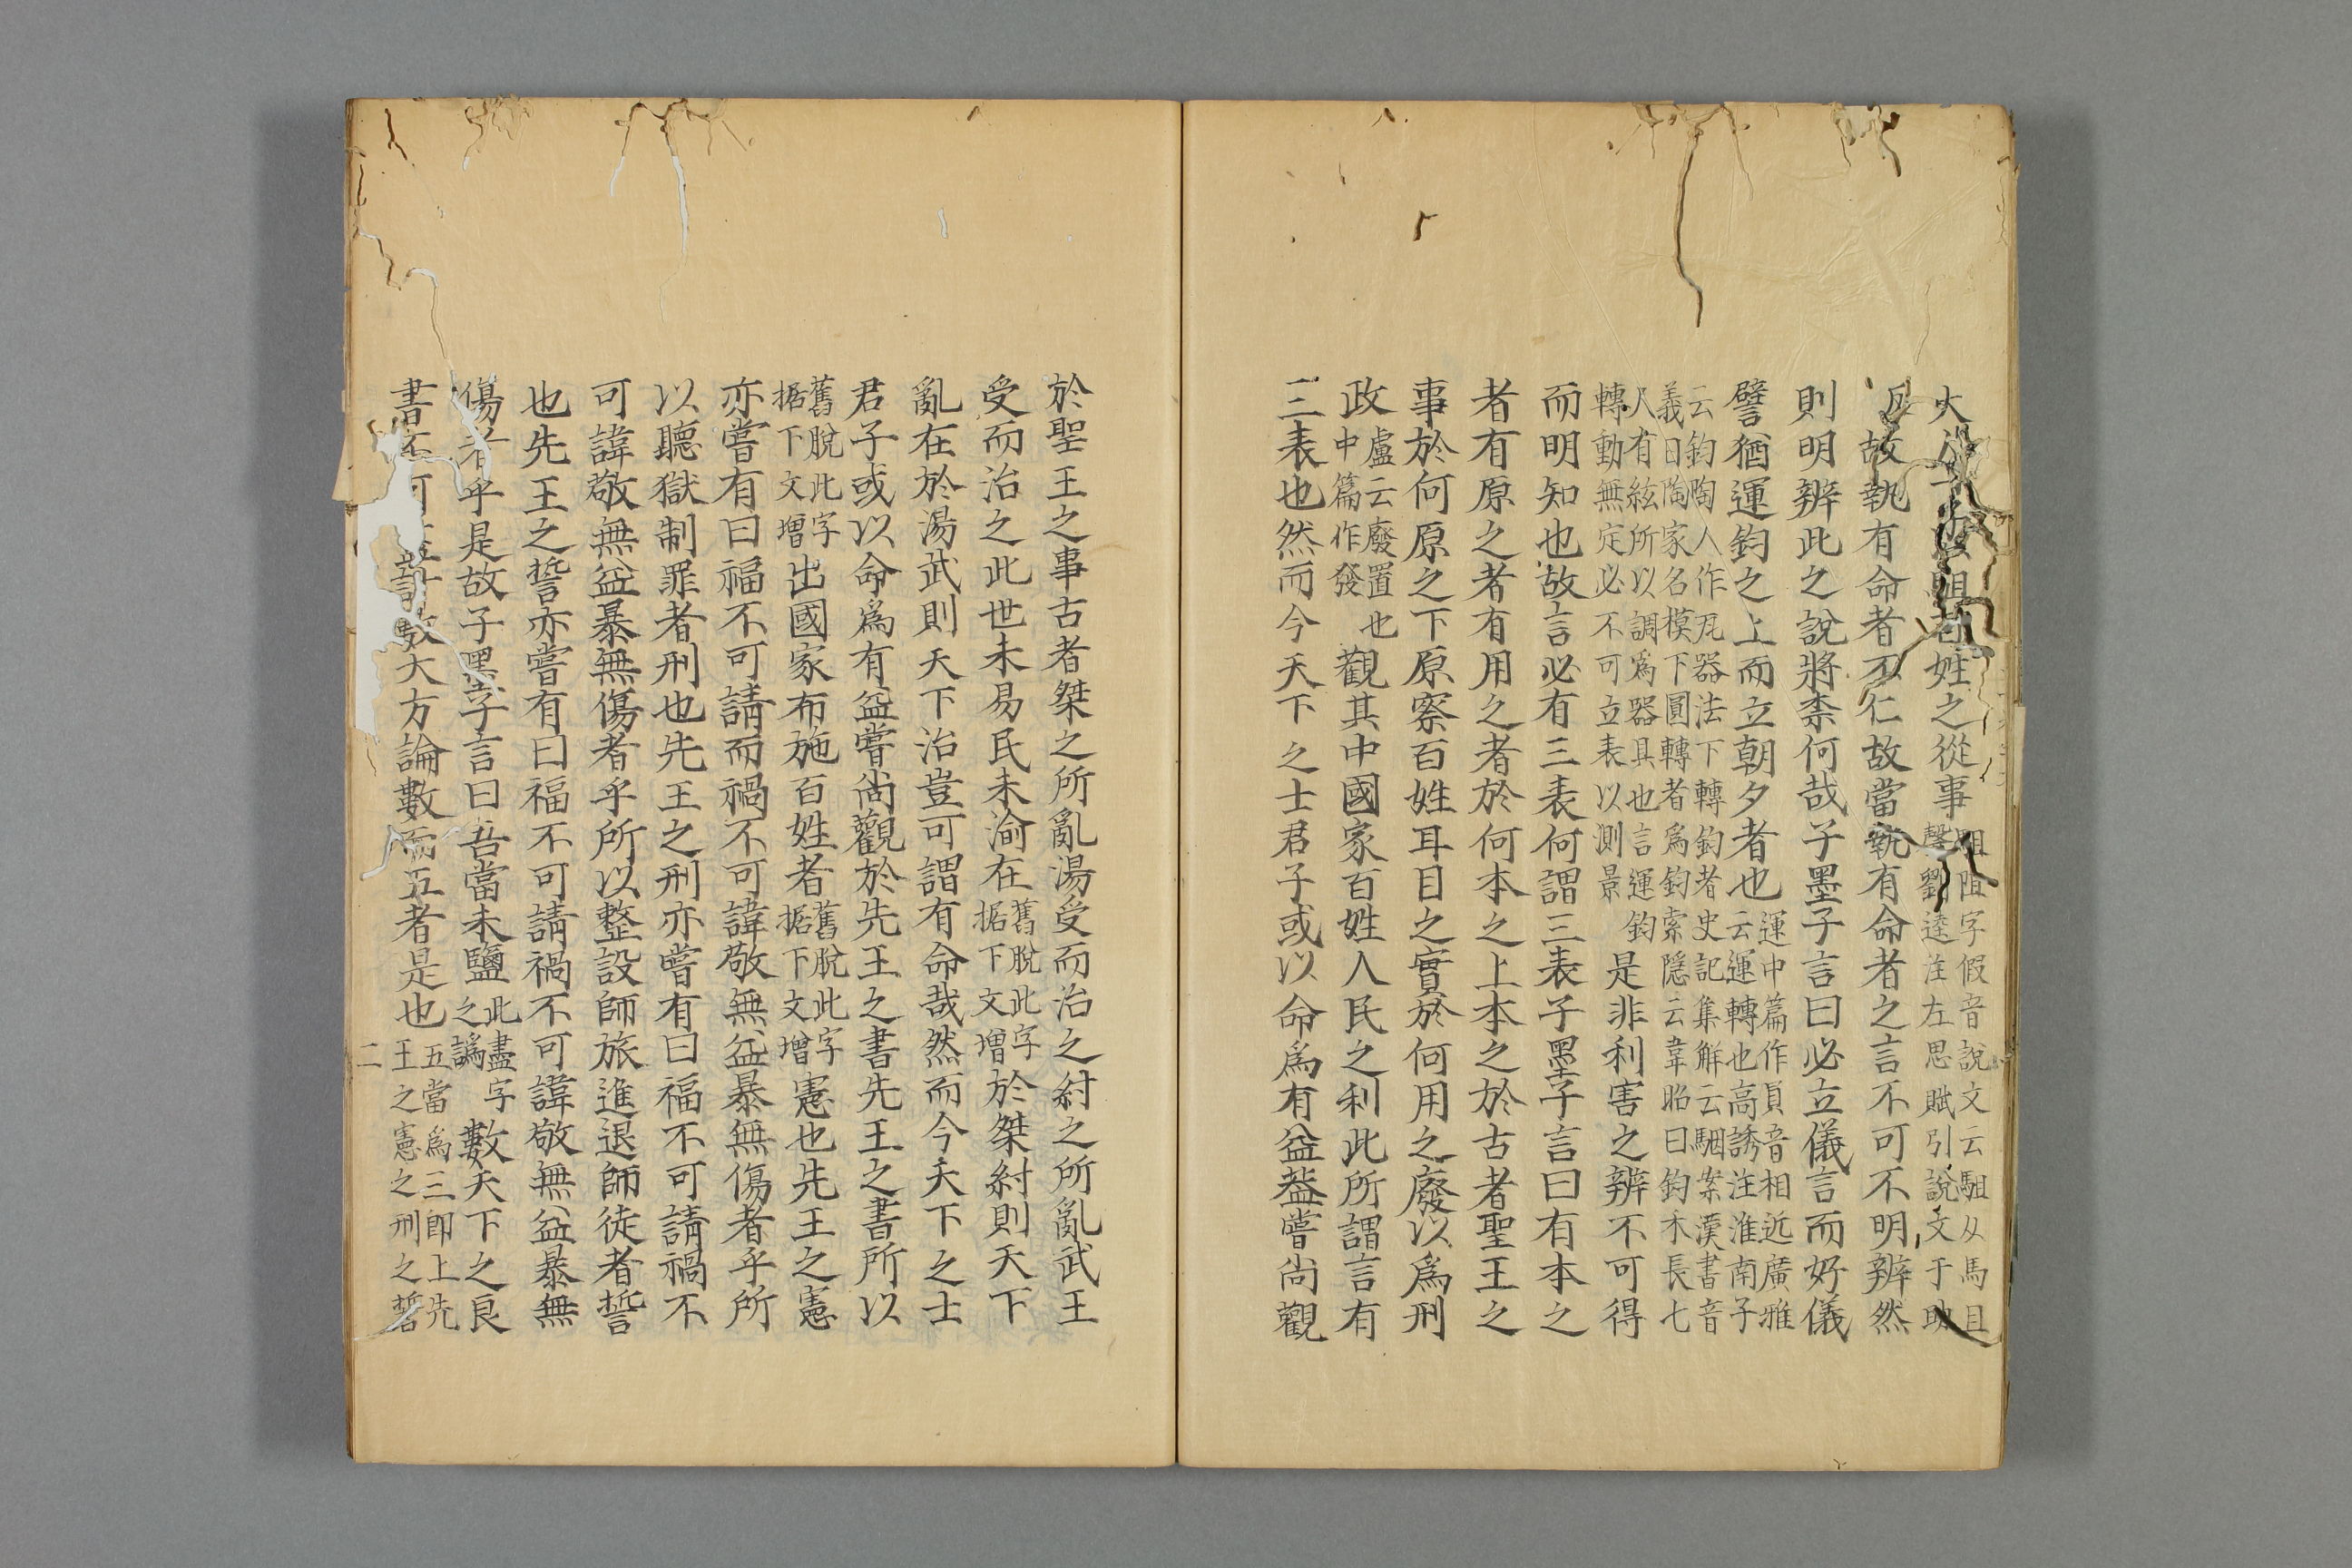 大駔百姓之從事
駔阻字假音說文云駔从馬且
聲劉逵注左思賦引說文于助
反故執有命者不仁故當執有命者之言不可不明辨然
則明辨此之說將柰何哉子墨子言曰必立儀言而好儀
譬猶運鈞之上而立朝夕者也
運中篇作員音相近廣雅
云運轉也高誘注淮南子
云鈞陶人作瓦器法下轉鈞者史記集解云駰案漢書音
義曰陶家名模下圓轉者爲鈞索隱云韋昭曰鈞木長七
人有絃所以調爲器具也言運鈞
轉動無定必不可立表以測景
是非利害之辨不可得
而明知也故言必有三表何謂三表子墨子言曰有本之
者有原之者有用之者於何本之上本之於古者聖王之
事於何原之下原察百姓耳目之實於何用之廢以爲刑
政
盧云廢置也
中篇作發
觀其中國家百姓人民之利此所謂言有
三表也然而今天下之士君子或以命爲有益蓋嘗尚觀
於聖王之事古者桀之所亂湯受而治之紂之所亂武王
受而治之此世未易民未渝在
舊脫此字
据下文增
於桀紂則天下
亂在於湯武則天下治豈可謂有命哉然而今天下之士
君子或以命爲有益嘗尚觀於先王之書先王之書所以
舊脫此字
据下文增
出國家布施百姓者
舊脫此字
据下文增
憲也先王之憲
亦嘗有曰福不可請而禍不可諱敬無益暴無傷者乎所
以聽獄制罪者刑也先王之刑亦嘗有曰福不可請禍不
可諱敬無益暴無傷者乎所以整設師旅進退師徒者誓
也先王之誓亦嘗有曰福不可請禍不可諱敬無益暴無
傷者乎是故子墨子言曰吾當未鹽
此盡字
之譌
數天下之良
書不可盡計數大方論數而五者是也
五當爲三即上先
王之憲之刑之誓
二